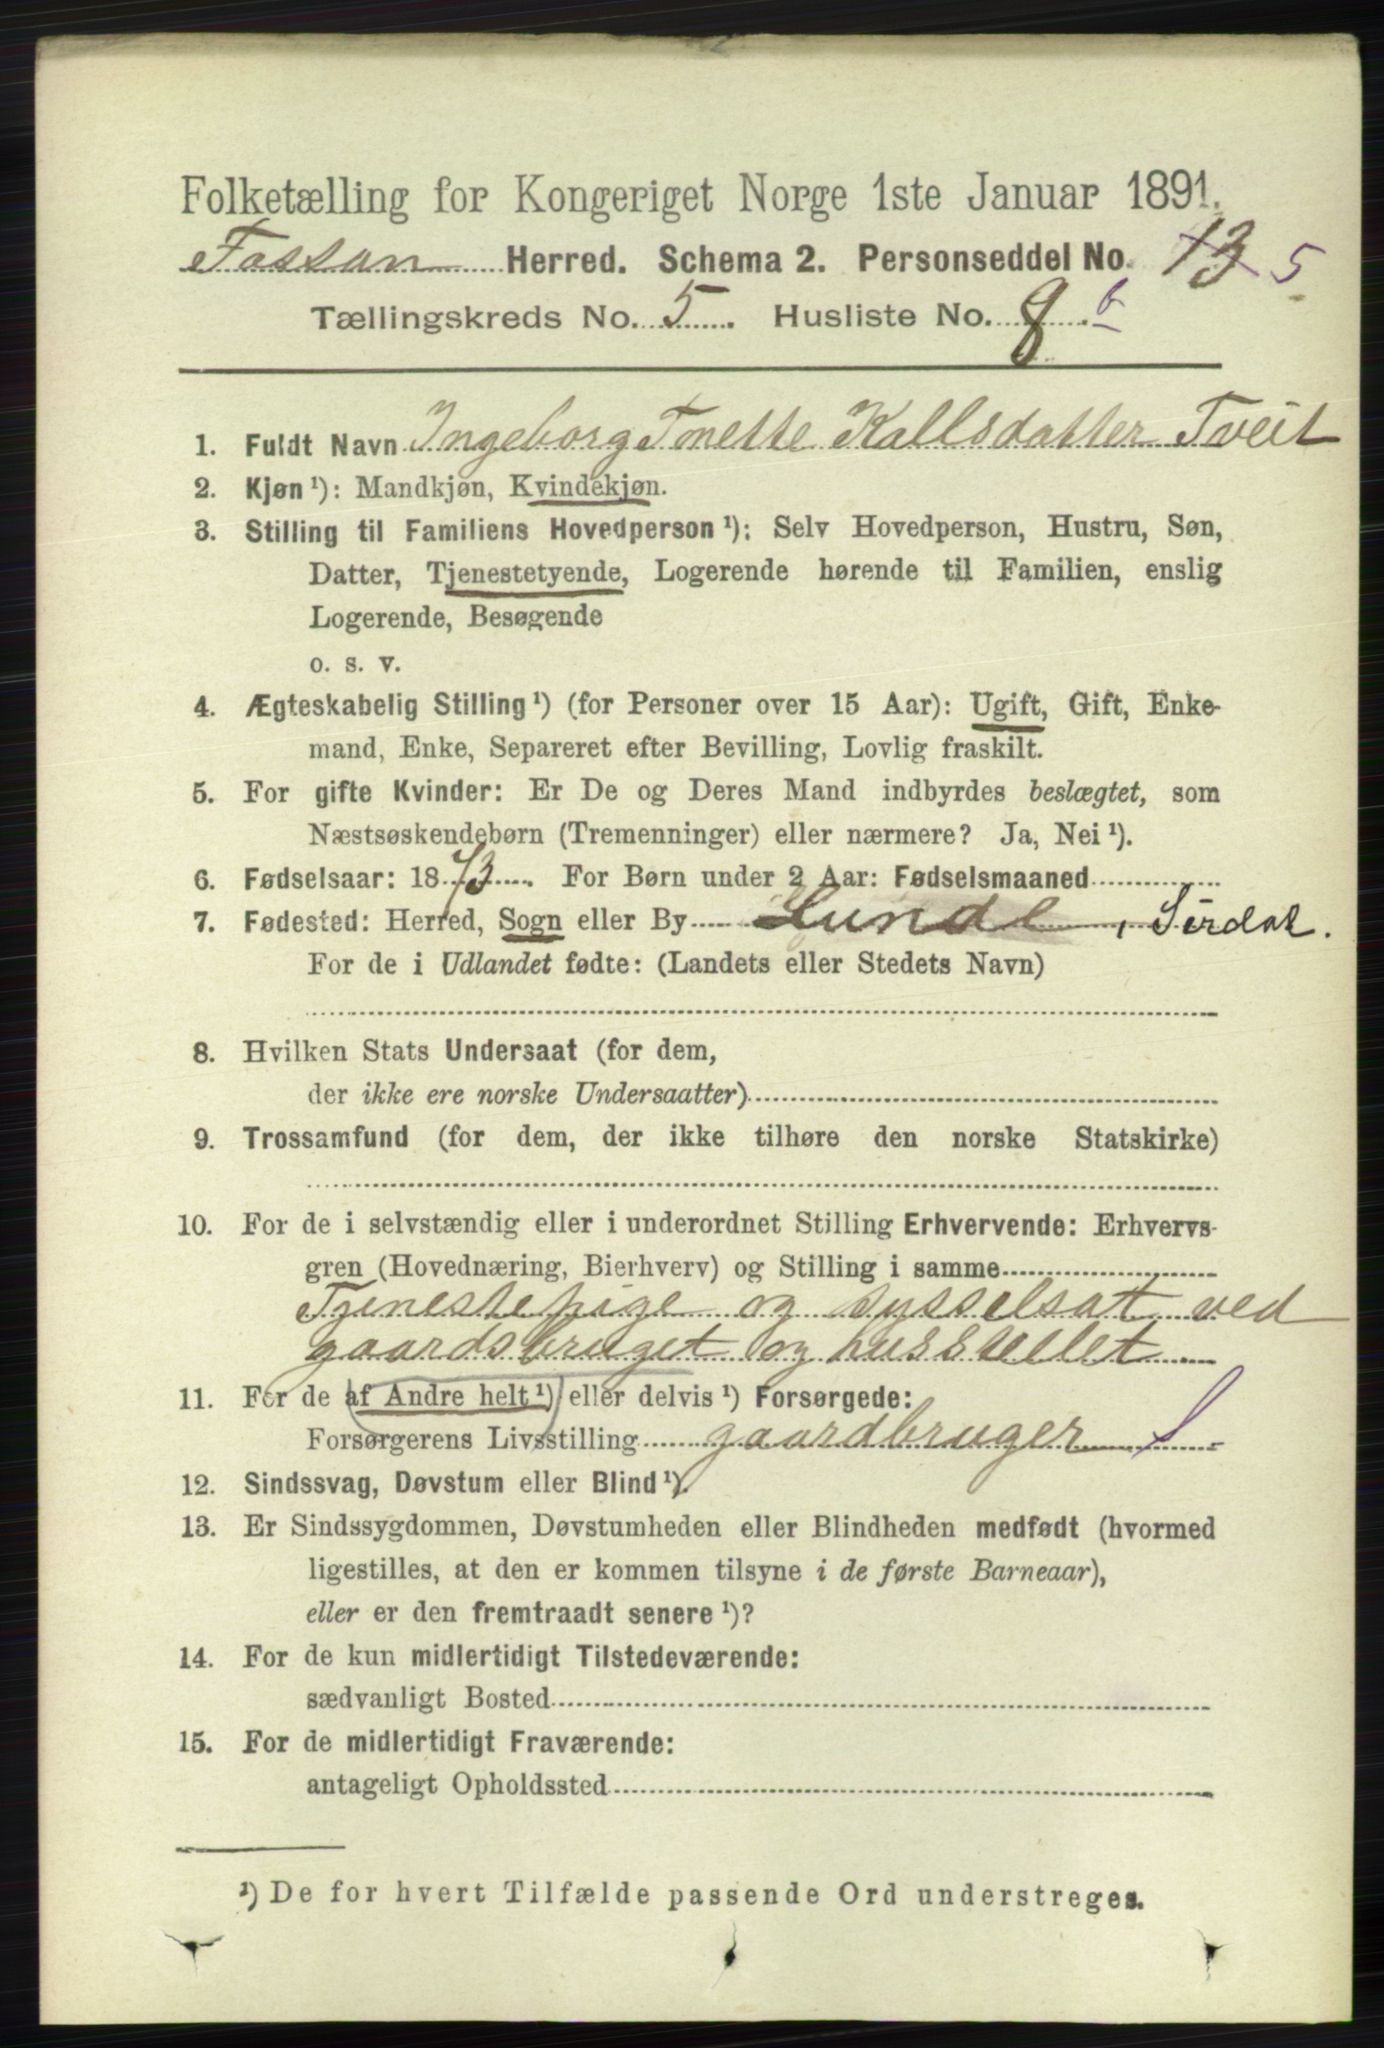 Folketælling for Kongeriget Norge 1ste Januar 1891.
Fossan Herred. Schema 2. Personseddel No. 13 5
Tællingskreds No. 5. Husliste No. 8 b
1. Fuldt Navn Ingeborg Tonette Kallsdatter Tveit
2. Kjøn ¹): Mandkjøn, Kvindekjøn.
3. Stilling til Familiens Hovedperson ¹): Selv Hovedperson, Hustru, Søn,
Datter, Tjenestetyende, Logerende hørende til Familien, enslig
Logerende, Besøgende
o. s. v.
4. Ægteskabelig Stilling ¹) (for Personer over 15 Aar): Ugift, Gift, Enke-
mand, Enke, Separeret efter Bevilling, Lovlig fraskilt.
5. For gifte Kvinder: Er De og Deres Mand indbyrdes beslægtet, som
Næstsøskendebørn (Tremenninger) eller nærmere? Ja, Nei ¹).
6. Fødselsaar: 1873. For Børn under 2 Aar: Fødselsmaaned
7. Fødested: Herred, Sogn eller By Lunde, Sirdal.
For de i Udlandet fødte: (Landets eller Stedets Navn)
8. Hvilken Stats Undersaat (for dem,
der ikke ere norske Undersaatter)
9. Trossamfund (for dem, der ikke tilhøre den norske Statskirke)
10. For de i selvstændig eller i underordnet Stilling Erhvervende: Erhvervs-
gren (Hovednæring, Bierhverv) og Stilling i samme
Tjenestepige og sysselsat ved
gaardsbruget og husstellet
11. For de af Andre helt ¹) eller delvis ¹) Forsørgede:
Forsørgerens Livsstilling gaardbruger
12. Sindssvag, Døvstum eller Blind ¹).
13. Er Sindssygdommen, Døvstumheden eller Blindheden medfødt (hvormed
ligestilles, at den er kommen tilsyne i de første Barneaar),
eller er den fremtraadt senere ¹)?
14. For de kun midlertidigt Tilstedeværende:
sædvanligt Bosted
15. For de midlertidigt Fraværende:
antageligt Opholdssted
¹) De for hvert Tilfælde passende Ord understreges.